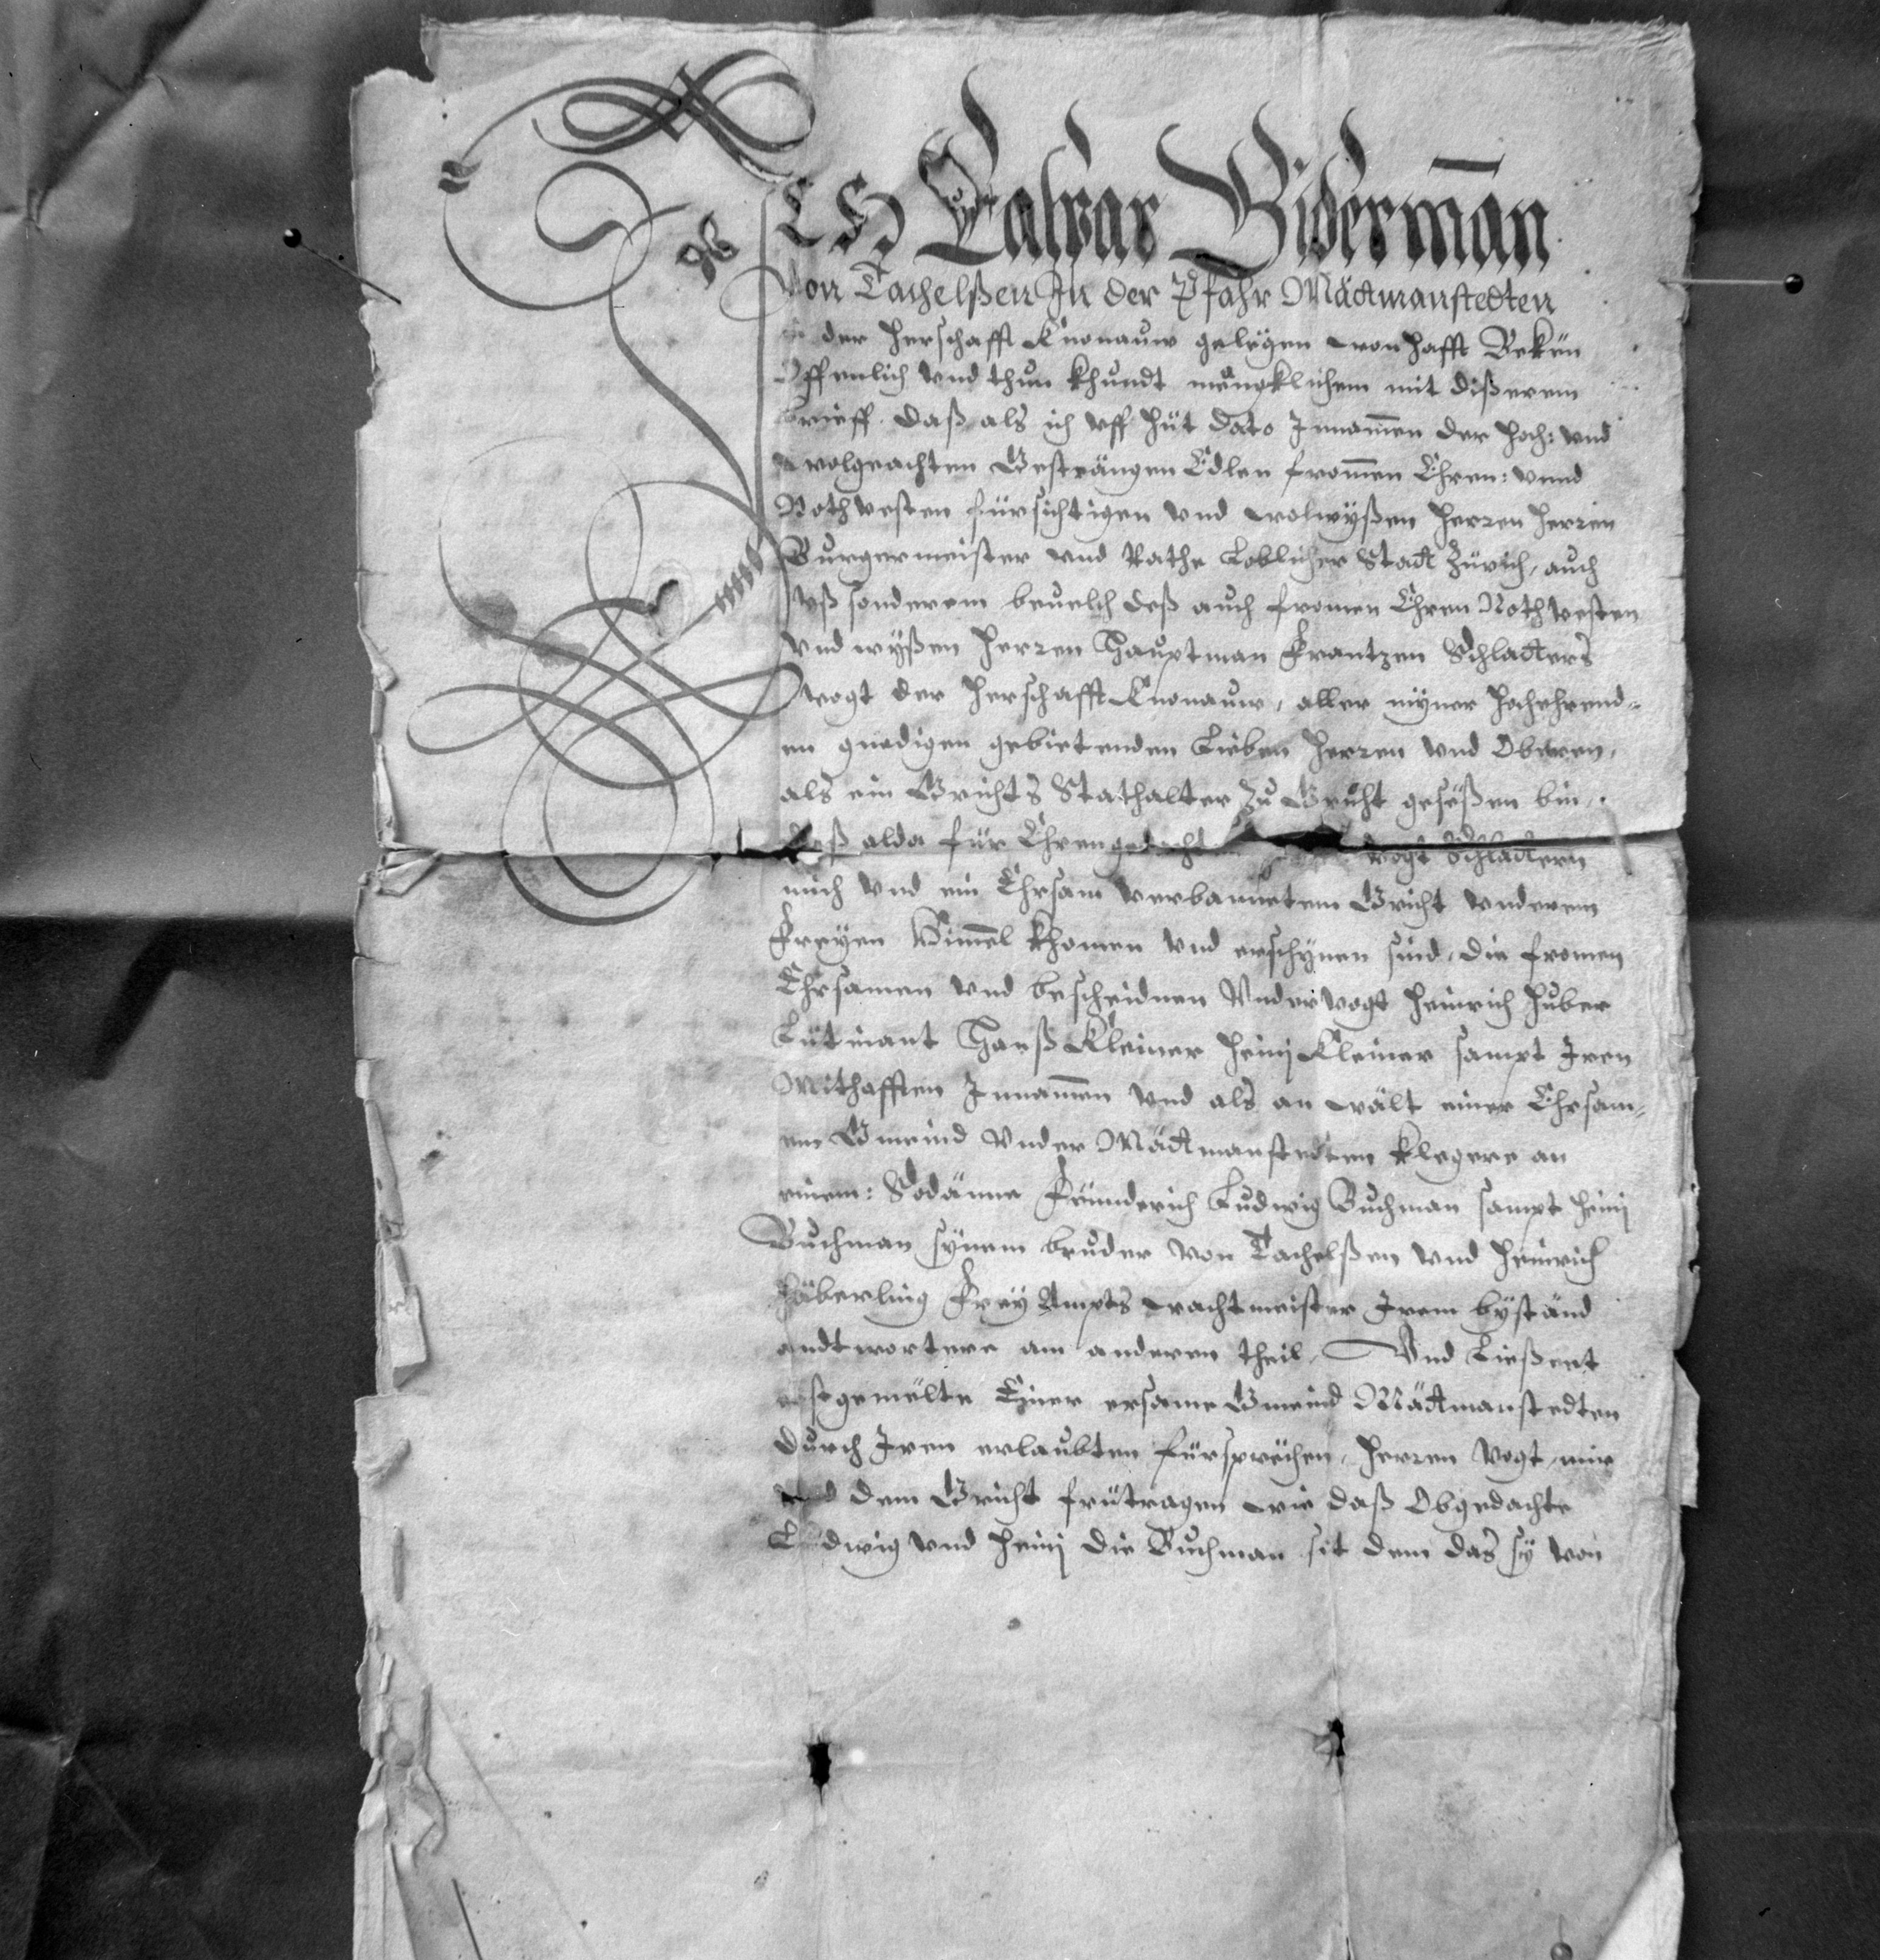 ICH Caspar Biderman
Von Tachelßen In der Pfahr Mättmanstedten
der Herschafft Knonauw gelëgen wonhafft Bekën
Offenlich vnd thun khundt mëngklichem mit dißerem
brieff. Daß als ich vff hüt dato Innam̄en der Hoch: vnd
wolgeachten Gesträngen Edlen from̄en Ehren: vnnd
Nothvesten fürsichtigen vnd wolwyßen Herren Herren
Burgermeister vnd Rathe Loblicher Statt Zürich, auch
vß sonderem beuelch deß auch fromen Ehren Nothvesten
vnd wyßen Herren Hauptman Frantzen Schlatters
vogt der Herschafft Knonauw, aller myner Hochehrend-
en gnedigen gebietenden Lieben Herren vnd Oberen,
als ein Grichts Stathalter Zu Gricht gesëßen bin,
daß alda für Ehrengedacht vogt Schlattern
mich vnd ein Ehrsam verbannetem Gricht vnderem
Freyen Him̄el khomen vnd erschynen sind, die fromen
Ehrsamen vnd bescheidnen Vndervogt Heinrich Huber
Lütinant Hanß Kleiner Heinj Kleiner sampt Iren
Mithafften Innam̄en vnd als an wält einer Ehrsam-
en Gmeind Vnder Mättmanstedten klegere an
einem: Sodänne Fründerich Ludwig Buchman sampt Heinj
Buchman synem bruder von Tachelßen vnd Heinrich
Häberling Frey Ampts wachtmeister Irem byständ
andtwortere am anderen theil, Vnd Ließent
erstgemëlte Einer ersame Gmeind Mättmanstedten
durch Iren erlaubten fürsprëchen, Herren Vogt, mir
vnd dem Gricht frütragen wie daß Obgedachte
Ludwig vnd Heinj die Buchman sit dem das sy von